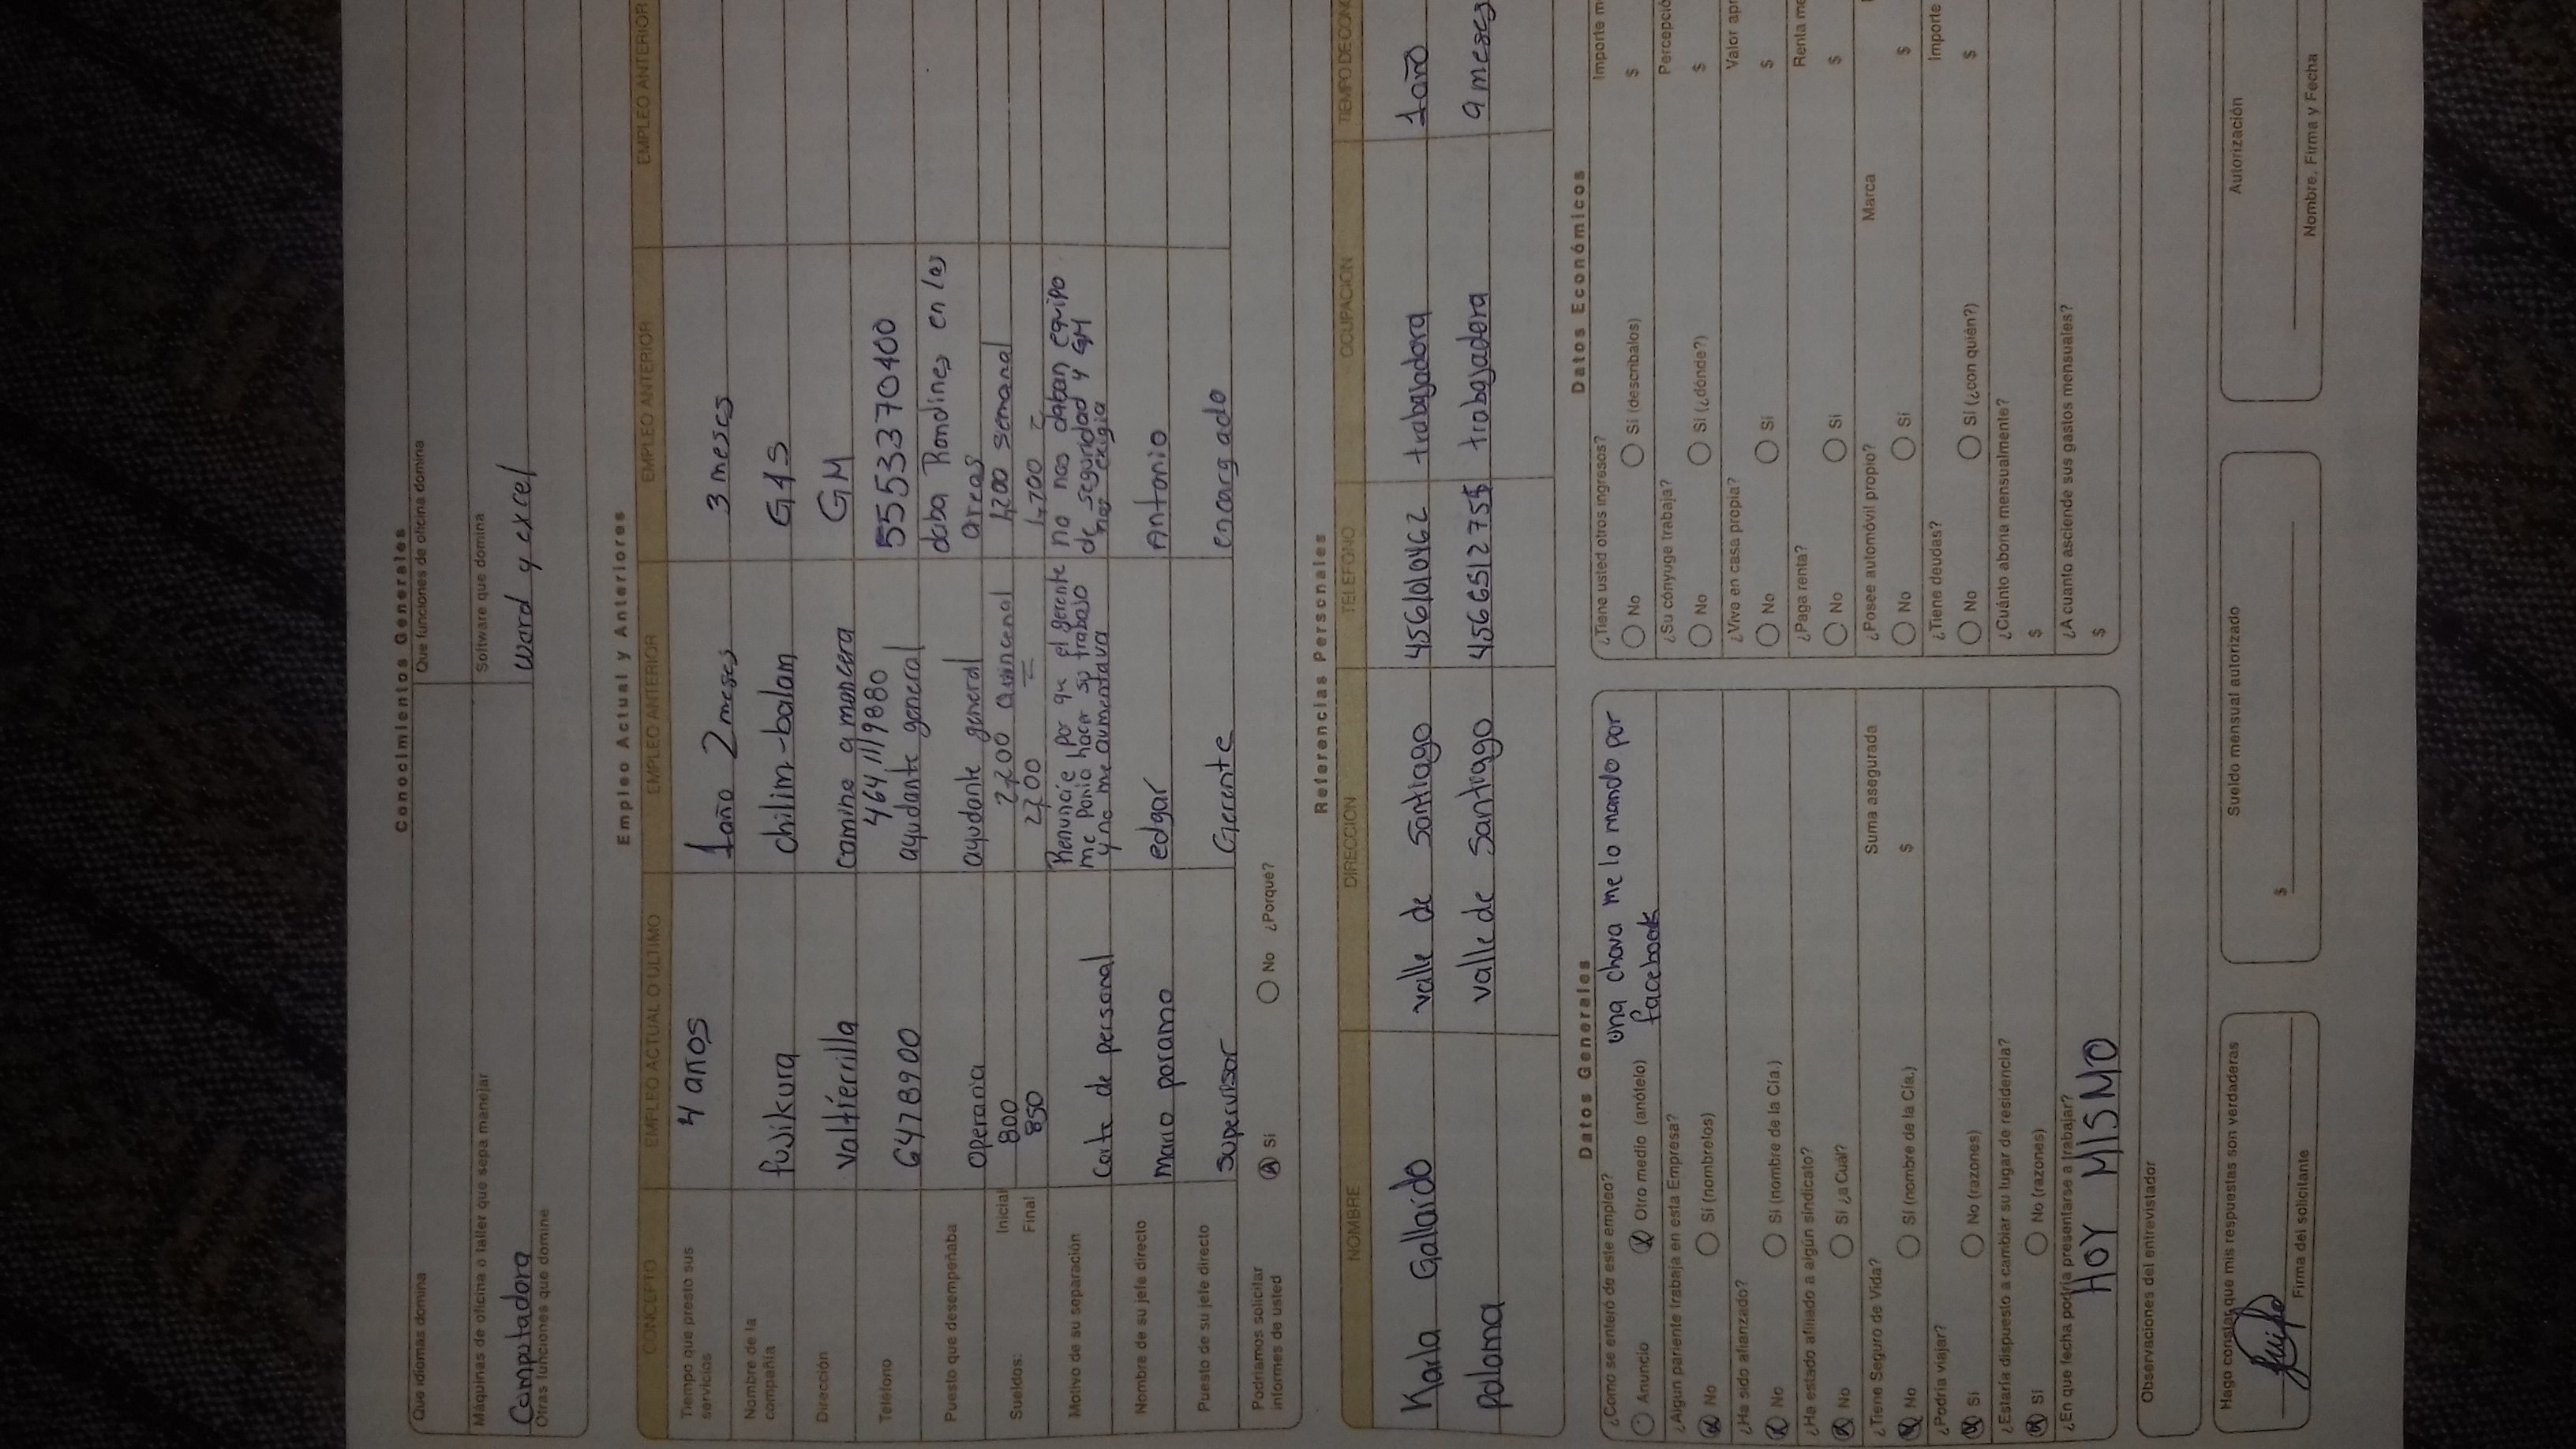 Conocimientos Generales
Que idiomas domina
Que funciones de oficina domina
Máquinas de oficina o taller que sepa manejar
Software que domina
Computadora
word y excel
Otras funciones que domine
Empleo Actual y Anteriores
CONCEPTO EMPLEO ACTUAL O ULTIMO EMPLEO ANTERIOR EMPLEO ANTERIOR EMPLEO ANTERIOR
Tiempo que presto sus servicios 4 anos 1 año 2 meses 3 meses
Nombre de la compañía fujikura chilim-balam G4S
Dirección valtierrilla camine a moncera GM
Teléfono 6478900 464 1119880 5553370400
ayudante general
Puesto que desempeñaba operaria ayudante general daba Rondines en las areas
Sueldos: Inicial 800 2,200 Quincenal 1,200 semanal
Final 850 2,700 = 1,700 =
Motivo de su separación corte de personal Renuncie por que el gerente me ponia hacer su trabajo y no me aumentava no nos daban equipo de seguridad y GM nos exigia
Nombre de su jefe directo mario paramo edgar Antonio
Puesto de su jefe directo supervisor Gerente encargado
Podríamos solicitar informes de usted Sí No ¿Porqué?
Referencias Personales
NOMBRE DIRECCION TELEFONO OCUPACION TIEMPO DE
Karla Gallardo valle de Santiago 4561010462 trabajadora 1 año
paloma valle de Santiago trabajadora 9 meses
Datos Generales
¿Como se enteró de este empleo? una chava me lo mando por
Anuncio Otro medio (anótelo) facebook
¿Algun pariente trabaja en esta Empresa?
No Sí (nombrelos)
¿Ha sido afianzado?
No Sí (nombre de la Cía.)
¿Ha estado afiliado a algún sindicato?
No Sí ¿a Cuál?
¿Tiene Seguro de Vida? Suma asegurada
No Sí (nombre de la Cía.) $
¿Podría viajar?
Sí No (razones)
¿Estaría dispuesto a cambiar su lugar de residencia?
Sí No (razones)
¿En que fecha podría presentarse a trabajar?
HOY MISMO
Datos Económicos
¿Tiene usted otros ingresos? Importe
No Sí (descríbalos) $
¿Su cónyuge trabaja?
No Sí (¿dónde?) $
¿Vive en casa propia? Valor
No Sí $
¿Paga renta? Renta
No Sí $
¿Posee automóvil propio? Marca
No Sí $
¿Tiene deudas? Importe
No Sí (¿con quién?) $
¿Cuánto abona mensualmente?
$
¿A cuanto asciende sus gastos mensuales?
$
Observaciones del entrevistador
Hago constar que mis respuestas son verdaderas
Firma del solicitante
Sueldo mensual autorizado
$
Autorización
Nombre, Firma y Fecha